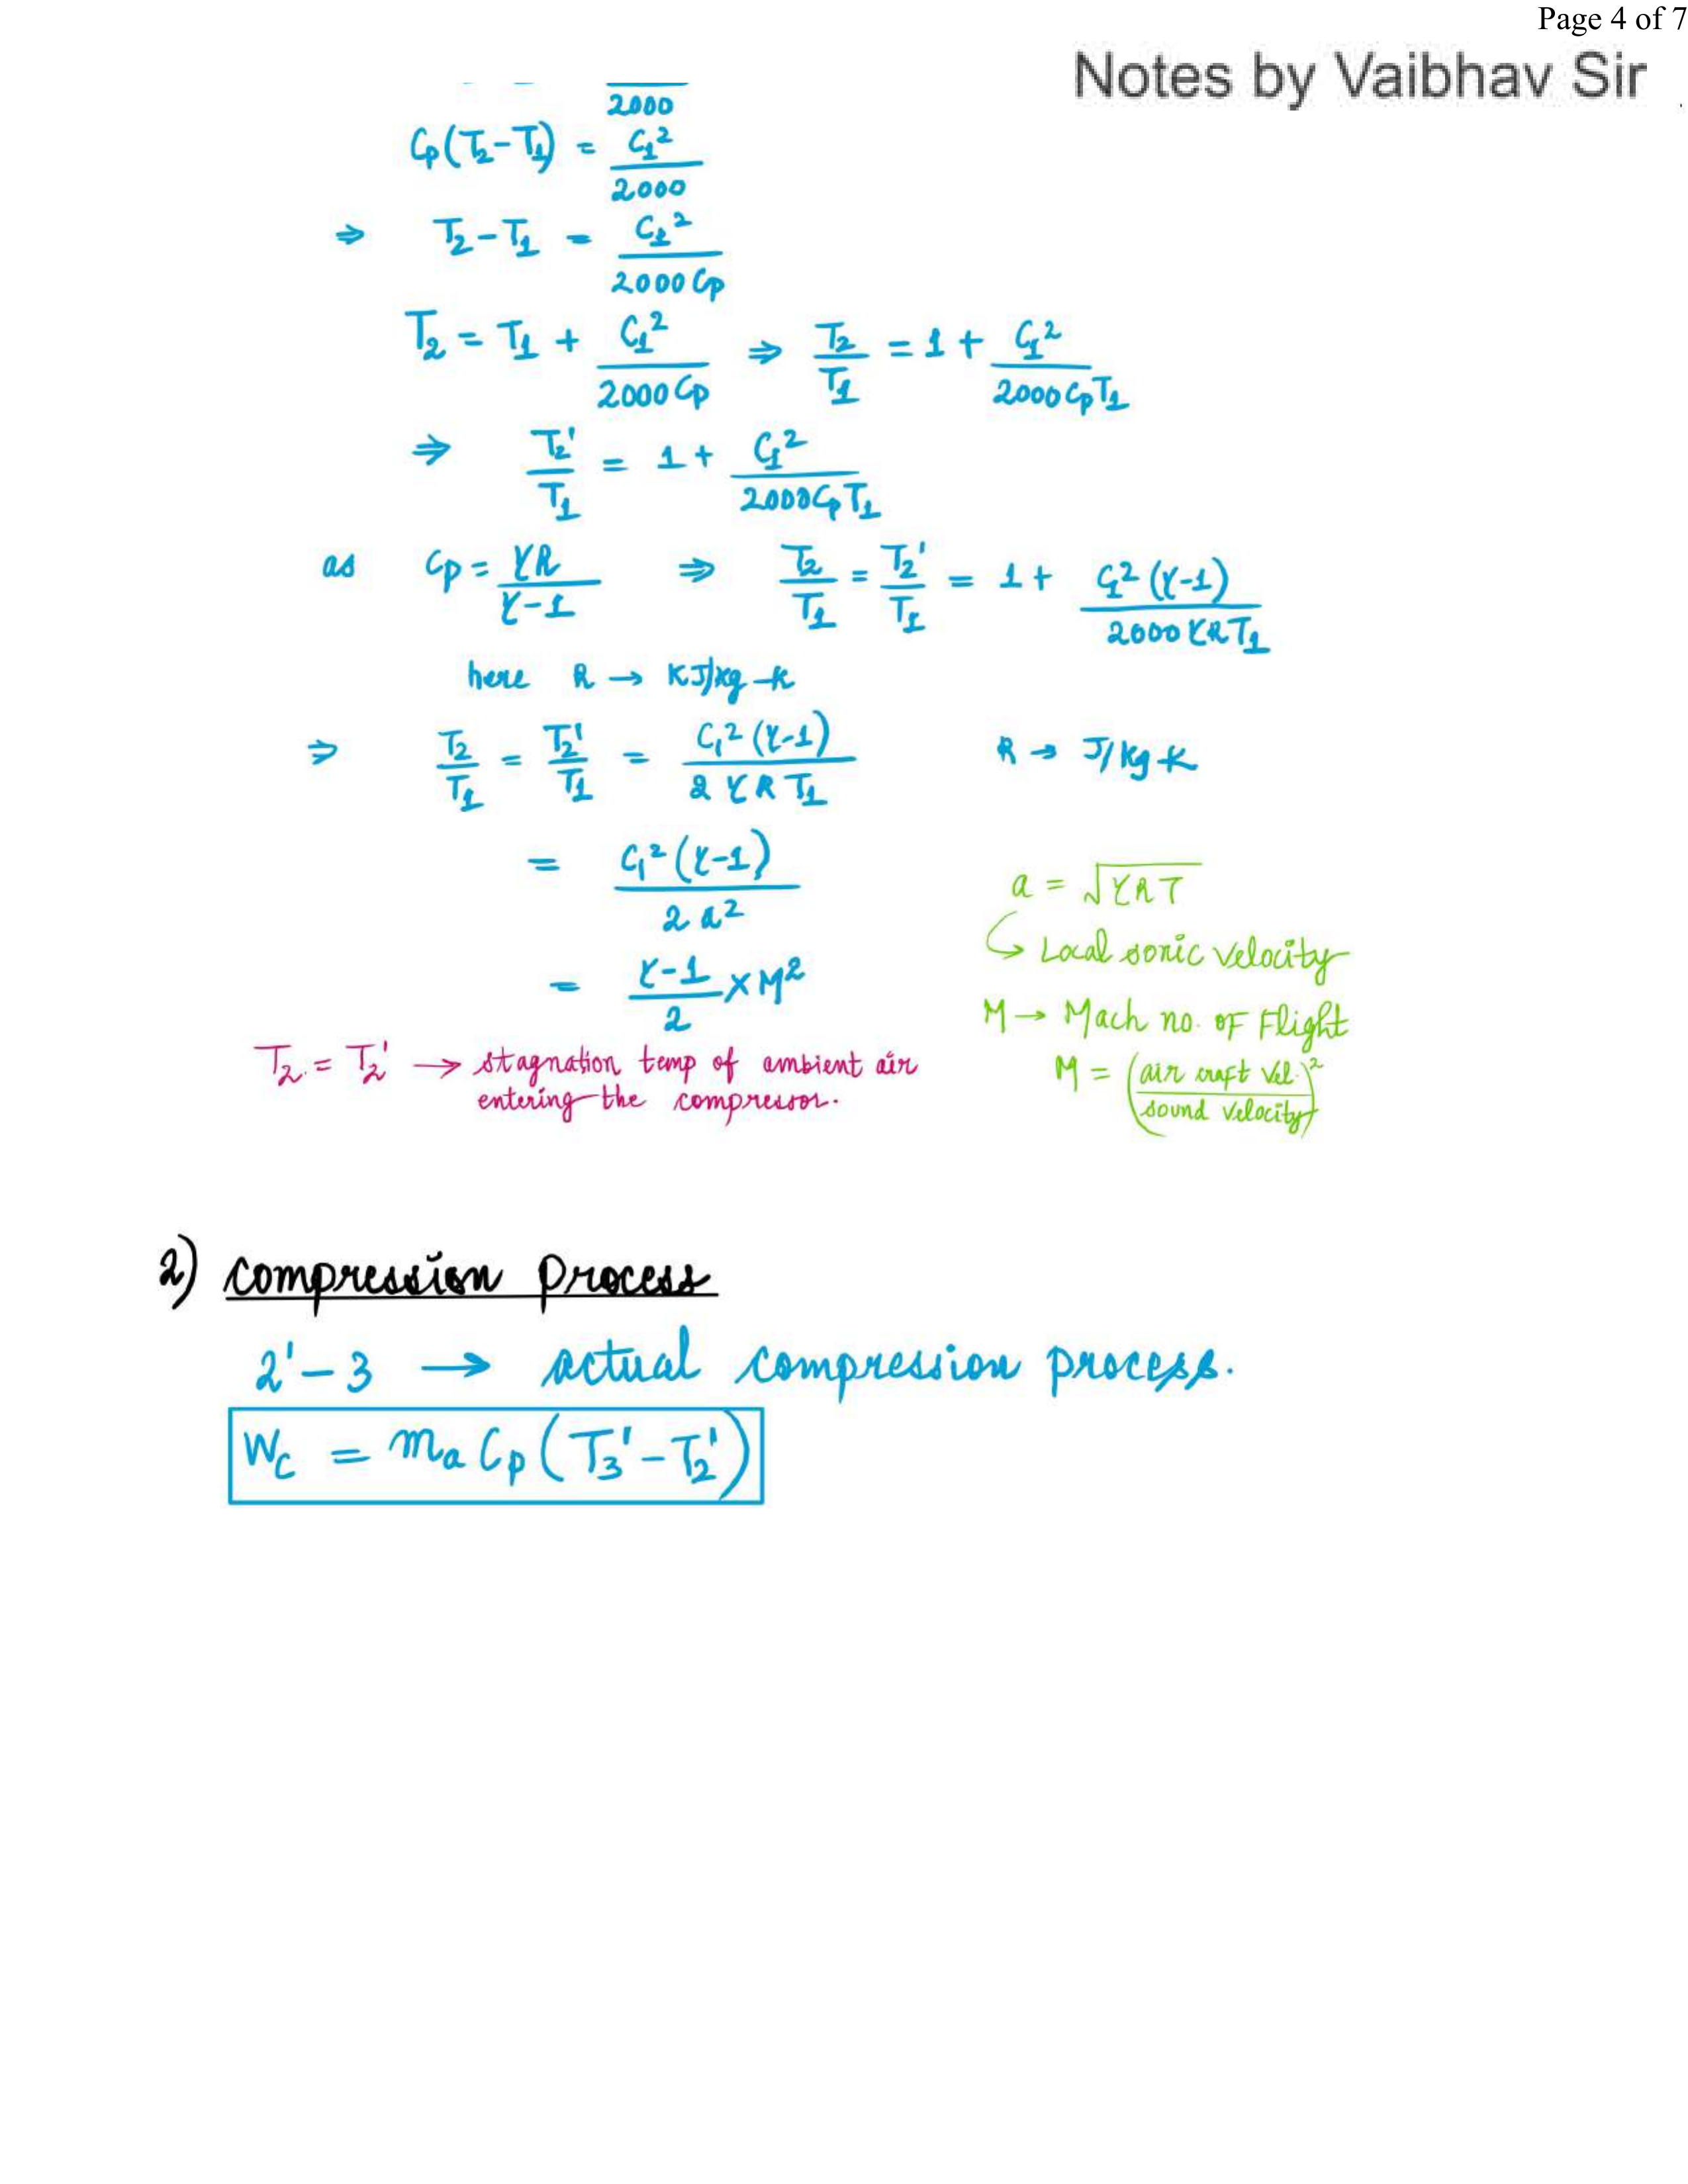 Page 4 of 7
Notes by Vaibhav Sir
2000
Cp(T₂-T₁) = C₁²/2000
⇒ T₂-T₁ = C₁²/2000Cp
T₂ = T₁ + C₁²/2000Cp ⇒ T₂/T₁ = 1 + C₁²/2000CpT₁
⇒ T₂'/T₁ = 1 + C₁²/2000CpT₁
as Cp = γR/γ-1 ⇒ T₂/T₁ = T₂'/T₁ = 1 + C₁²(γ-1)/2000γRT₁
here R → KJ/kg-K
⇒ T₂/T₁ = T₂'/T₁ = C₁²(γ-1)/2γRT₁ R → J/kg-K
= C₁²(γ-1)/2a²
a = √γRT
↳ Local sonic velocity
= γ-1/2 × M²
M → Mach no. of Flight
M = (air craft vel./sound velocity)²
T₂ = T₂' → stagnation temp of ambient air
entering the compressor.
2) compression Process
2'-3 → actual compression process.
Wc = ma Cp (T₃'-T₂')